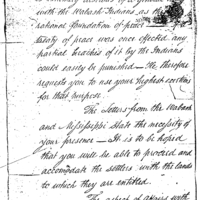 with the Wabash Indians, as the
rational foundation of peace
treaty of peace was once effected any
partial breaches of it by the Indians
could easily be punished — He therefore
requests you to use your highest exertions
for that purpose.
The Settlers from the Wabash
and Mississippi state the necessity of
your presence — It is to be hoped
that you will be able to proceed and
accomodate the settlers with the lands
to which they are entitled.
The aspect of affairs with